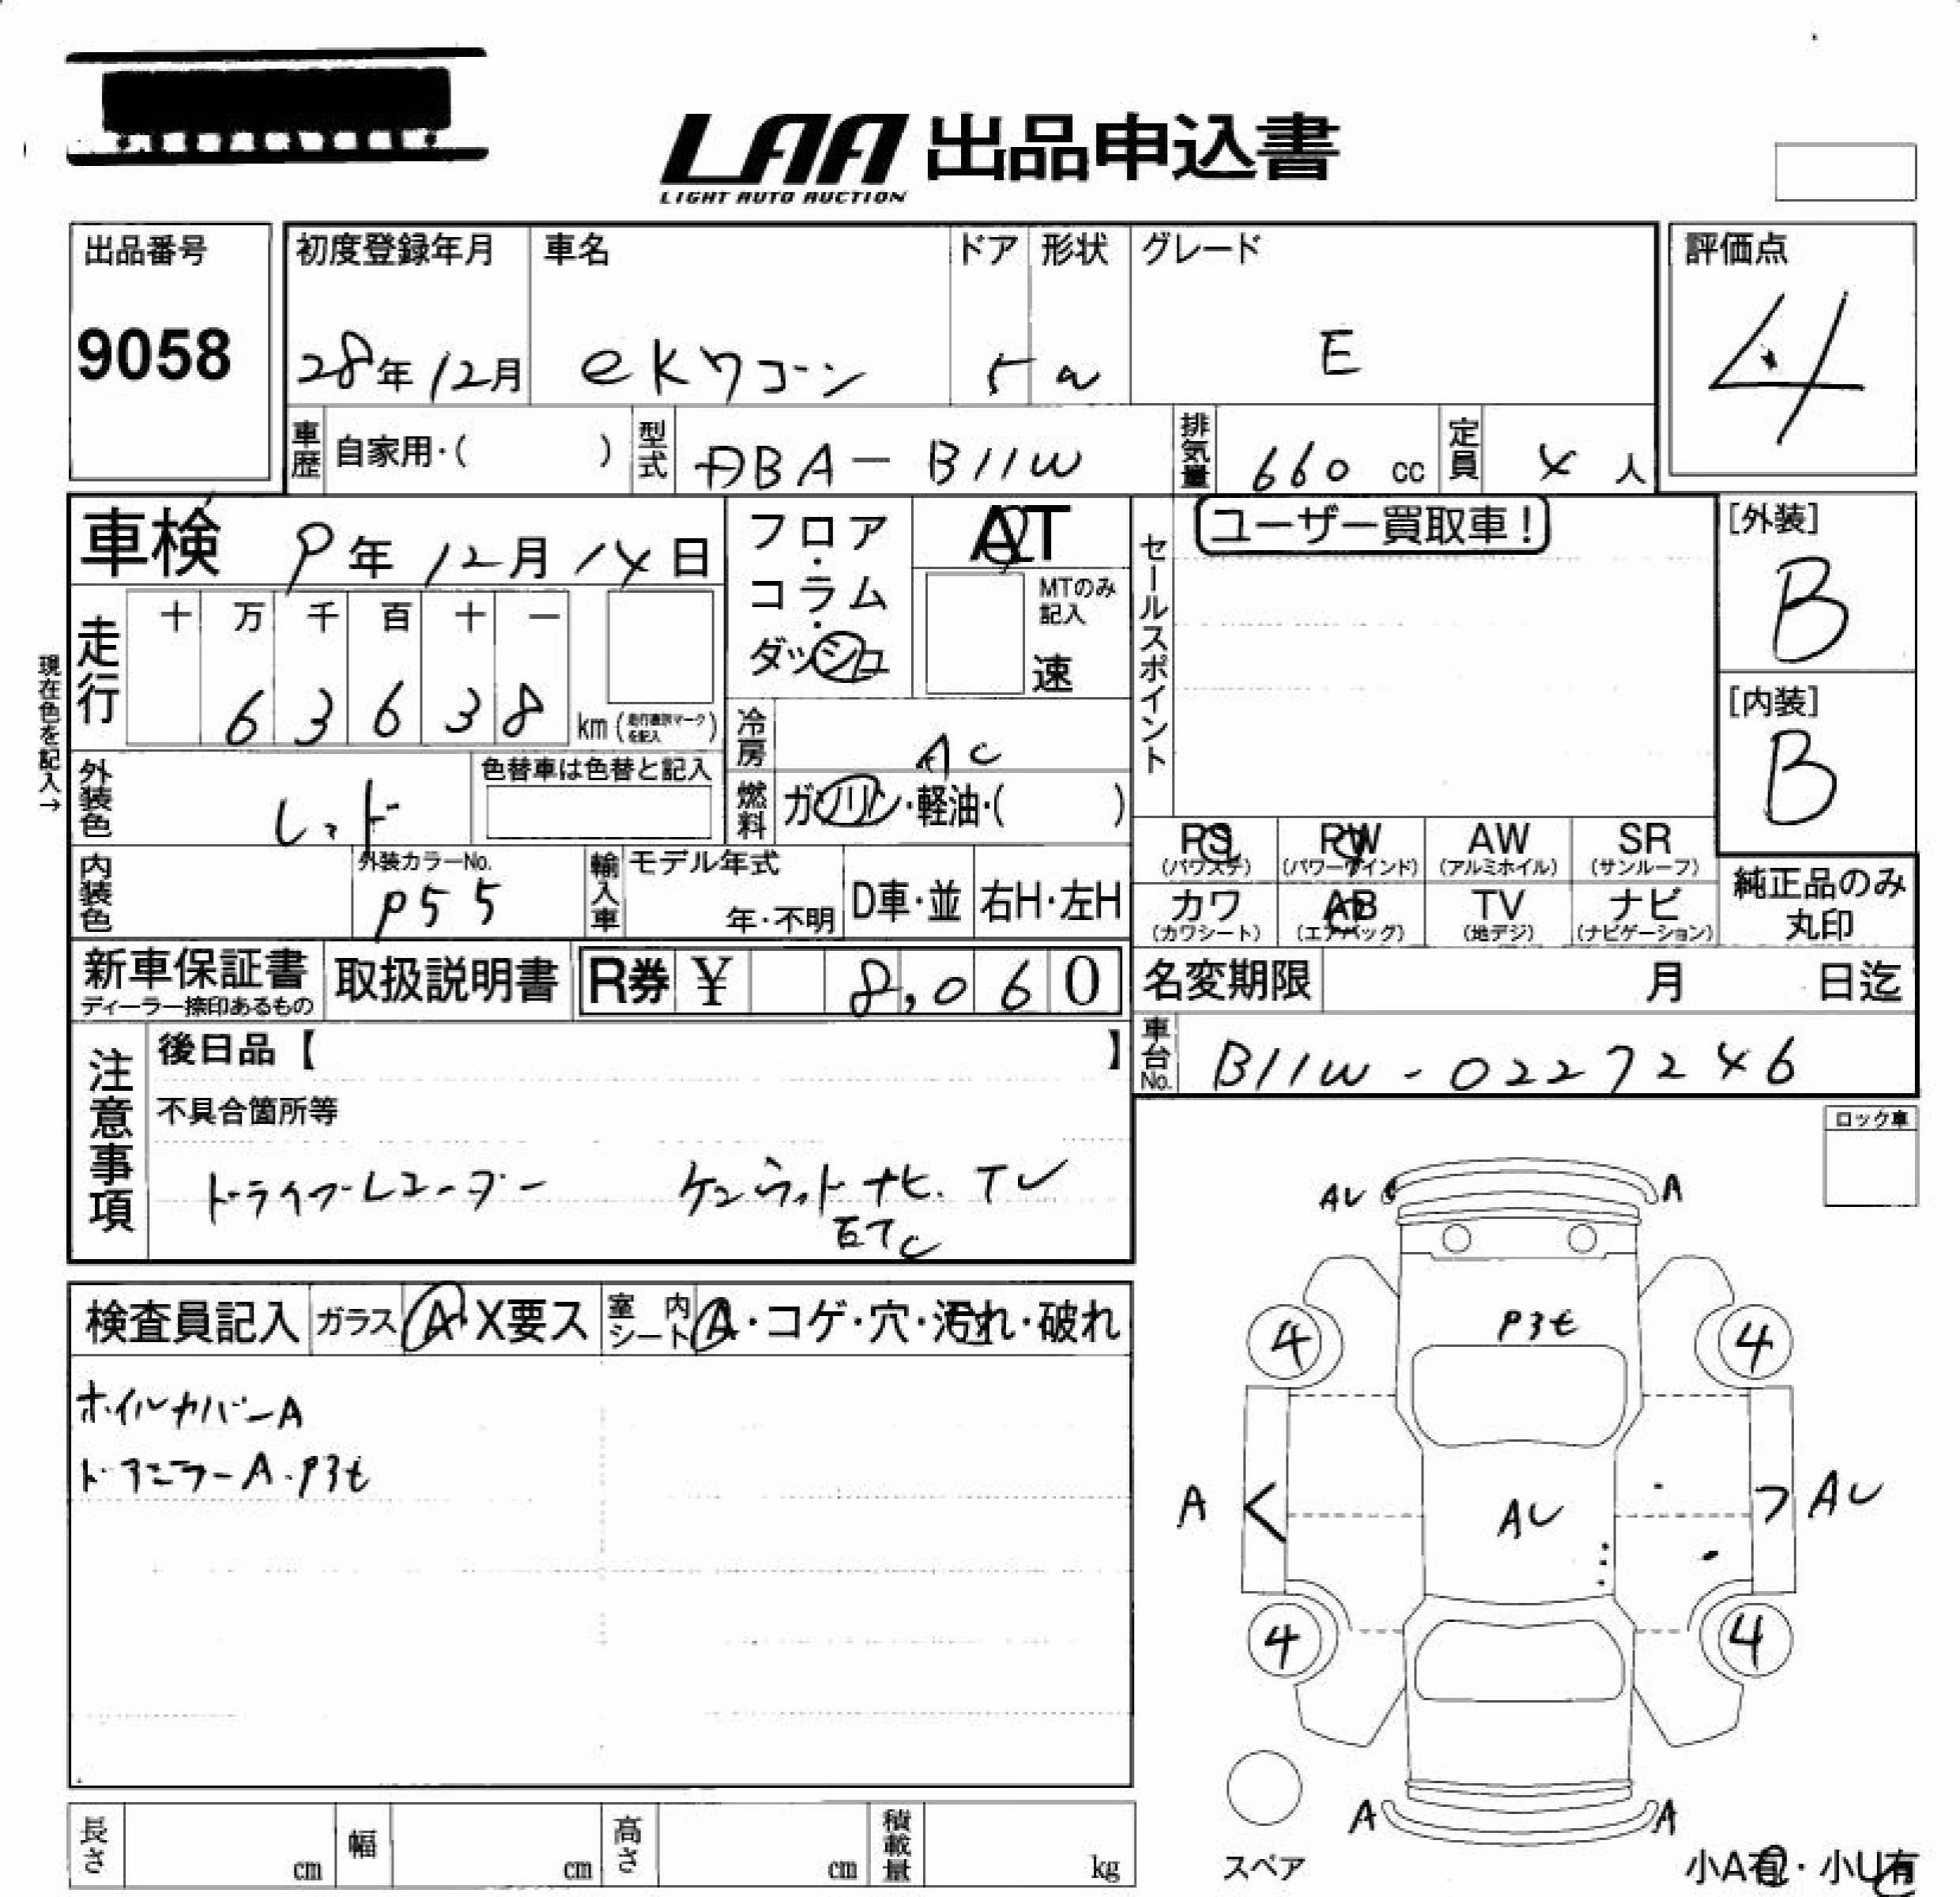 LAA 出品申込書
LIGHT AUTO AUCTION
出品番号 初度登録年月 車名 ドア 形状 グレード 評価点
9058 28年12月 eKワゴン 5 E 4
車歴 自家用・( ) 型式 DBA-B11W 排気量 660 cc 定員 4 人
車検 9年12月14日 フロア・コラム・ダッシュ AT
MTのみ記入 速
セールスポイント ユーザー買取車!
[外装] B
[内装] B
現在色を記入→
走行 十 万 千 百 十 一
6 3 6 3 8 km (走行書換マークを記入)
冷房 AC
外装色 レッド 色替車は色替と記入
燃料 ガソリン・軽油・( )
PS (パワステ) PW (パワーウインド) AW (アルミホイル) SR (サンルーフ)
カワ (カワシート) AB (エアバッグ) TV (地デジ) ナビ (ナビゲーション)
純正品のみ丸印
内装色 外装カラーNo. P55 輸入車 モデル年式 年・不明 D車・並 右H・左H
新車保証書 ディーラー捺印あるもの 取扱説明書 R券 ¥ 8,060 名変期限 月 日迄
車台No. B11W-0227246
注意事項 後日品【 】
不具合箇所等
ドライブレコーダー ケンウットナビ.TV
ETC
ロック車
検査員記入 ガラス A・X要ス 室内シート A・コゲ・穴・汚れ・破れ
ホイルカバーA
ドアミラーA・P3セ
AU A
P3セ
4 4
A AU AU
4 4
A A
スペア
小A有・小U有
長さ cm 幅 cm 高さ cm 積載量 kg